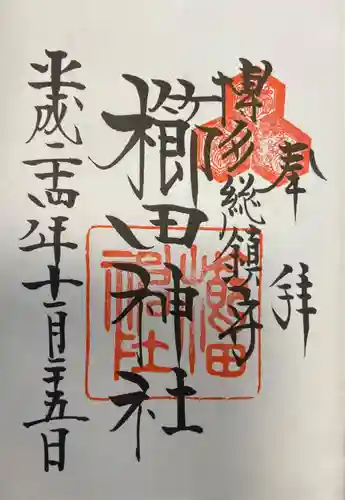 奉拝
博多総鎮守
櫛田神社
平成二十四年十二月二十五日
櫛田神社